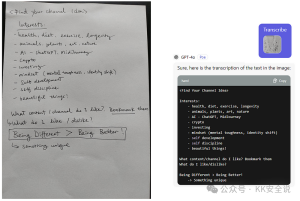 <Find Your Channel Idea>
Interests:
- health, diet, exercise, longevity
- animals, plants, art, nature
- AI - ChatGPT, MidJourney
- crypto
- investing
- mindset (mental toughness, identity shift)
- self development
- self discipline
- beautiful things!
What content/channel do I like? Bookmark them
What do I like/dislike?
Being Different > Being Better
↳ Something unique
Transcribe
GPT-4o
Sure, here is the transcription of the text in the image:
Copy
<Find Your Channel Idea>
Interests:
- health, diet, exercise, longevity
- animals, plants, art, nature
- AI - ChatGPT, MidJourney
- crypto
- investing
- mindset (mental toughness, identity shift)
- self development
- self discipline
- beautiful things!
What content/channel do I like? Bookmark them
What do I like/dislike?
Being Different > Being Better
-> Something unique
公众号 · KK安全说